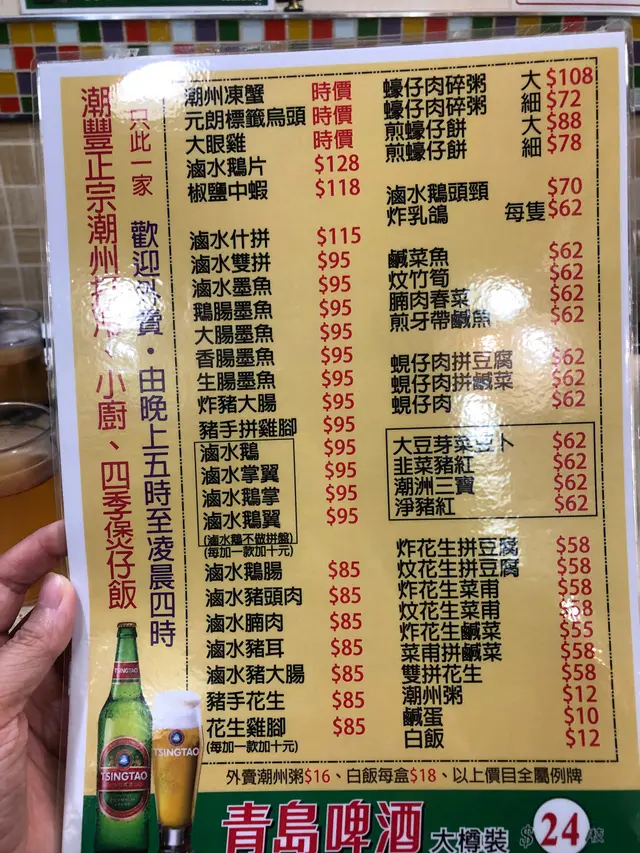 潮豐正宗潮州打冷、小廚、四季煲仔飯
只此一家
歡迎外賣・由晚上五時至凌晨四時
潮州凍蟹 時價
元朗標籤烏頭 時價
大眼雞 時價
滷水鵝片 $128
椒鹽中蝦 $118
滷水什拼 $115
滷水雙拼 $95
滷水墨魚 $95
鵝腸墨魚 $95
大腸墨魚 $95
香腸墨魚 $95
生腸墨魚 $95
炸豬大腸 $95
豬手拼雞腳 $95
滷水鵝 $95
滷水掌翼 $95
滷水鵝掌 $95
滷水鵝翼 $95
(滷水鵝不做拼盤)
(每加一款加十元)
滷水鵝腸 $85
滷水豬頭肉 $85
滷水腩肉 $85
滷水豬耳 $85
滷水豬大腸 $85
豬手花生 $85
花生雞腳 $85
(每加一款加十元)
蠔仔肉碎粥 大 $108
蠔仔肉碎粥 細 $72
煎蠔仔餅 大 $88
煎蠔仔餅 細 $78
滷水鵝頭頸 $70
炸乳鴿 每隻 $62
鹹菜魚 $62
炆竹筍 $62
腩肉春菜 $62
煎牙帶鹹魚 $62
蜆仔肉拼豆腐 $62
蜆仔肉拼鹹菜 $62
蜆仔肉 $62
大豆芽菜豆卜 $62
韭菜豬紅 $62
潮洲三寶 $62
淨豬紅 $62
炸花生拼豆腐 $58
炆花生拼豆腐 $58
炸花生菜甫 $58
炆花生菜甫 $58
炸花生鹹菜 $55
菜甫拼鹹菜 $58
雙拼花生 $58
潮州粥 $12
鹹蛋 $10
白飯 $12
外賣潮州粥$16、白飯每盒$18、以上價目全屬例牌
TSINGTAO
TSINGTAO
TSINGTAO
青島啤酒 大樽裝 $24/枝